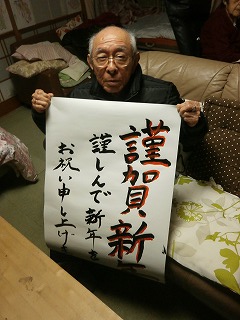 謹賀新年
謹しんで新年を
お祝い申し上げ